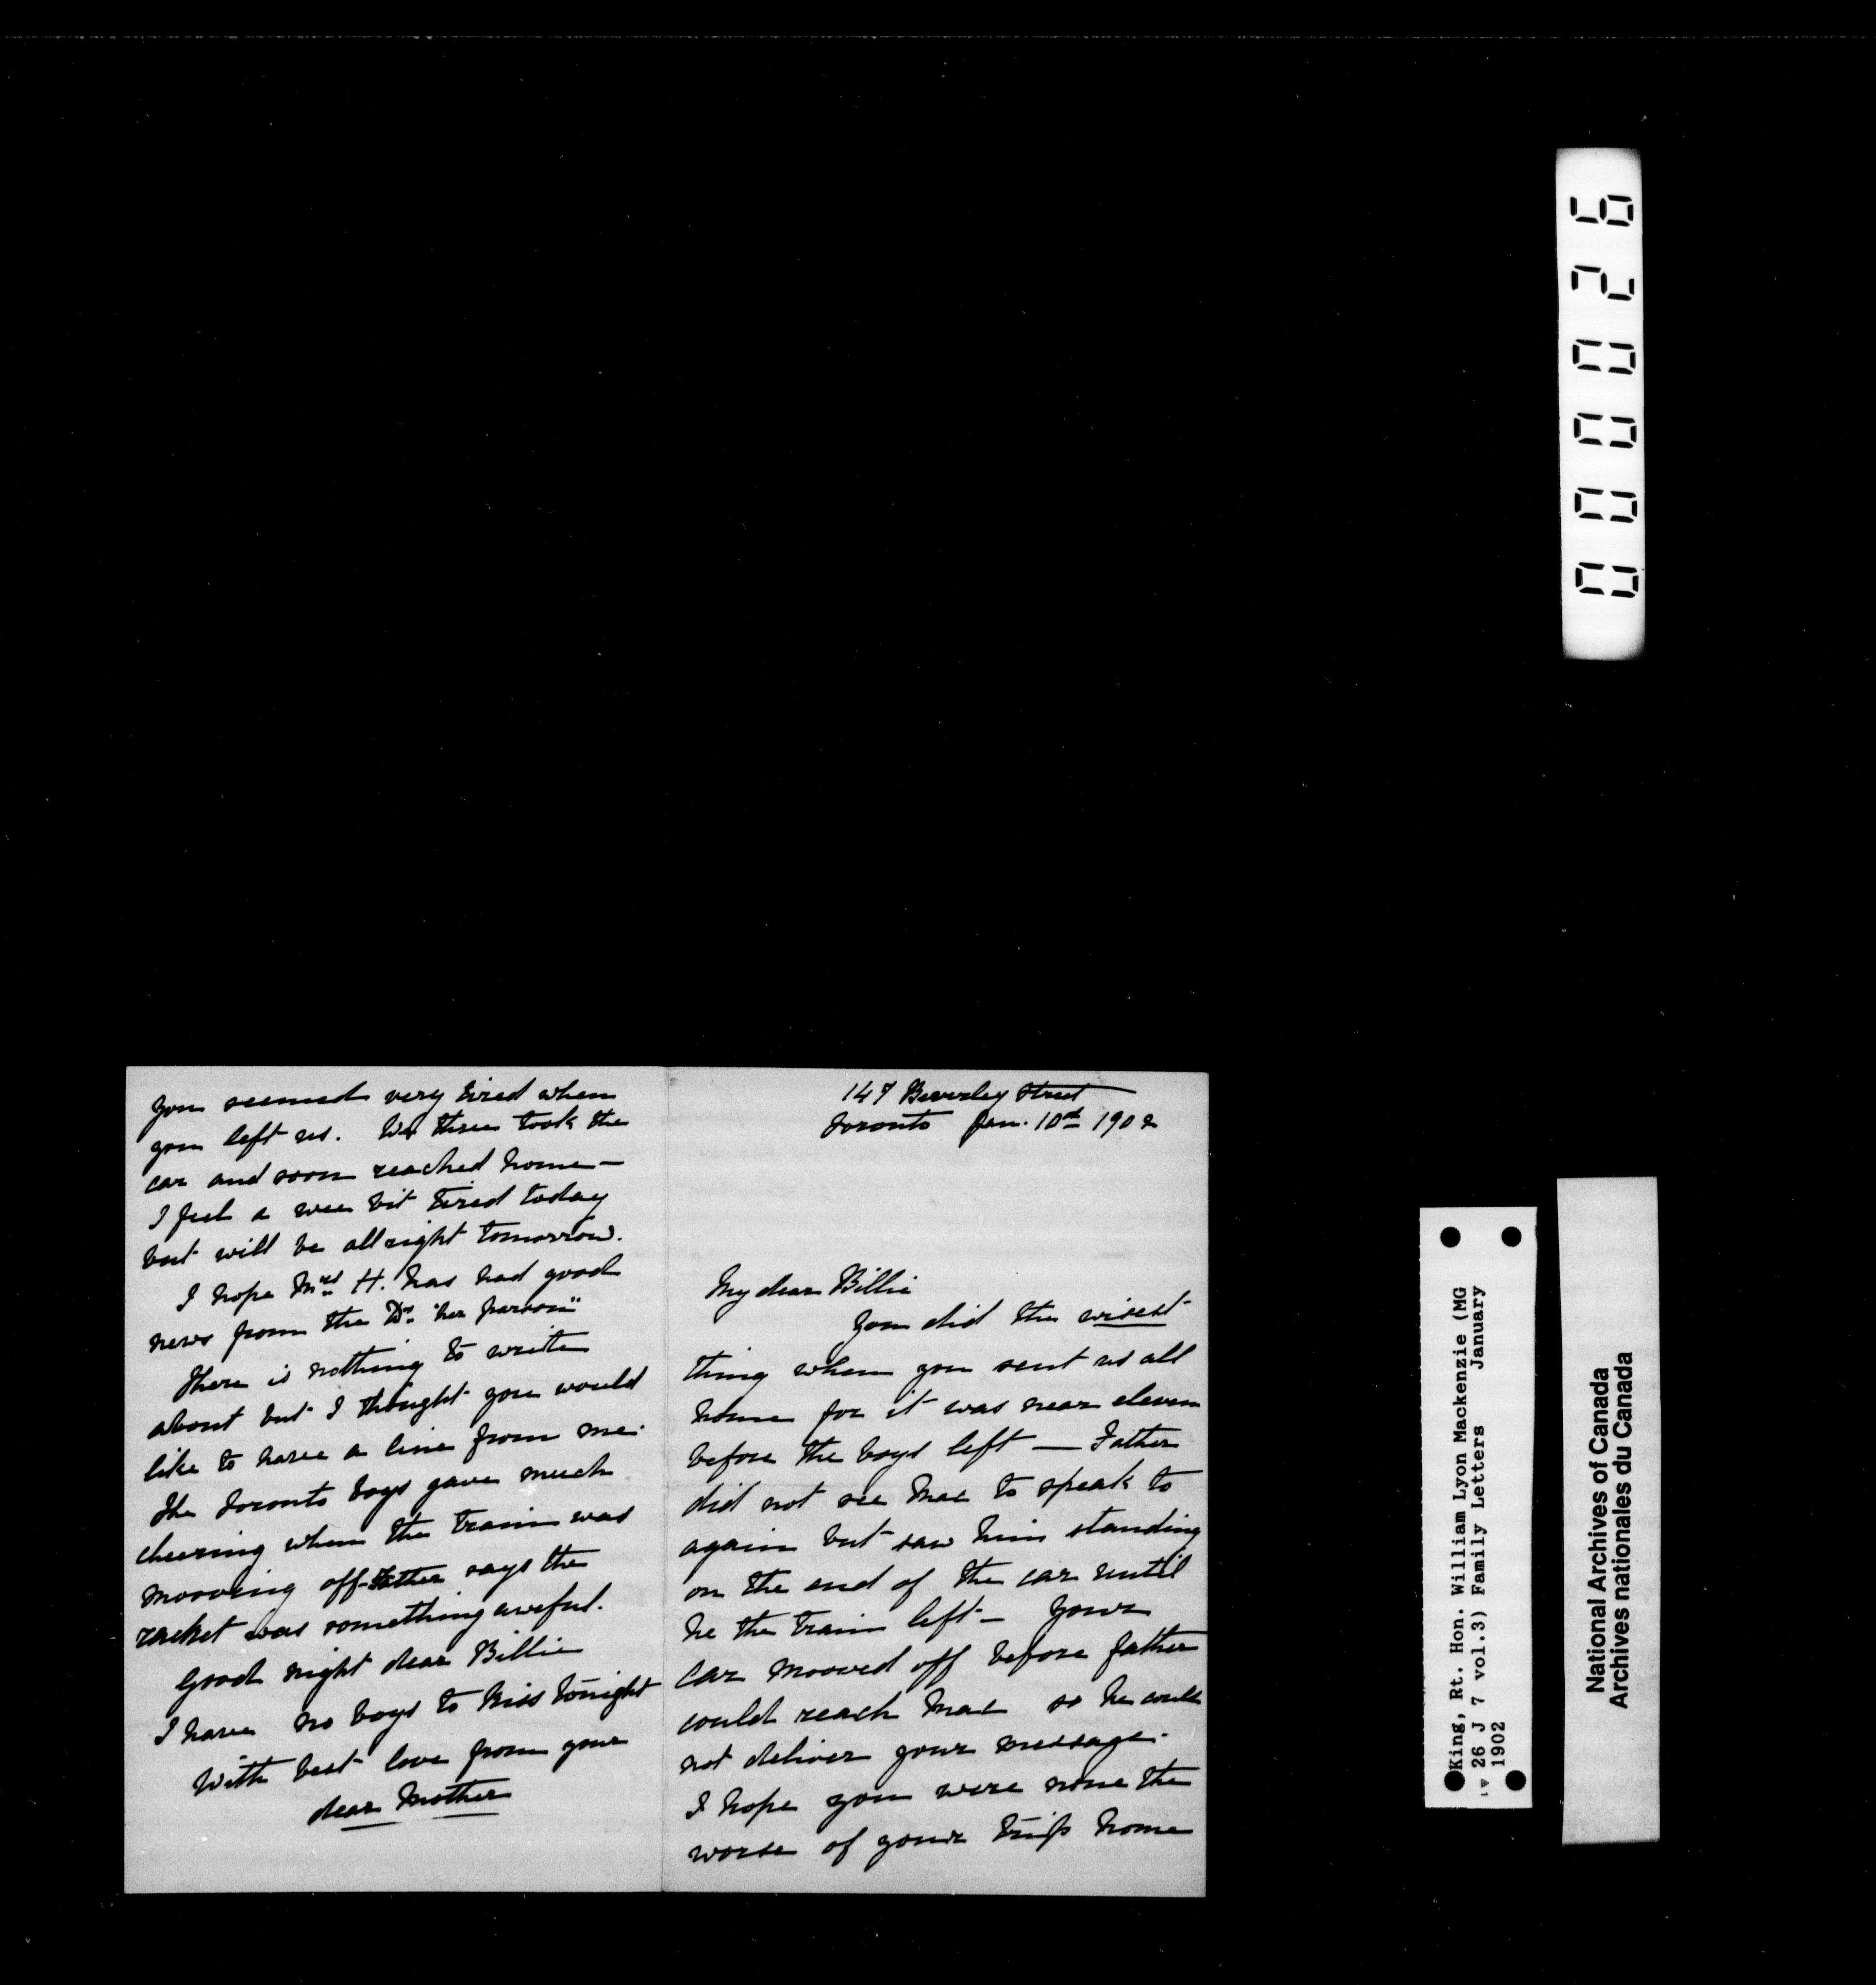 147 Beverley Street
Toronto Jan. 10th 1902
My dear Billie
You did the wisest
thing when you sent us all
home for it was near eleven
before the boys left — Father
did not see Mac to speak to
again but saw him standing
on the end of the car until
he the train left — Your
car mooved off before father
could reach Mac so he could
not deliver your message.
I hope you were none the
worse of your trip home
you seemed very tired when
you left us. We three took the
car and soon reached home —
I feel a wee bit tired today
but will be allright tomorrow.
I hope Mrs H. has had good
news from the Dr. "her parson"
There is nothing to write
about but I thought you would
like to have a line from me.
The Toronto boys gave much
cheering when the train was
mooving off - Father says the
racket was something aweful.
Good night dear Billie
I have no boys to kiss tonight
With best love from your
dear Mother
000026
King, Rt. Hon. William Lyon Mackenzie (MG
26 J 7 vol.3) Family Letters January
1902
National Archives of Canada
Archives nationales du Canada